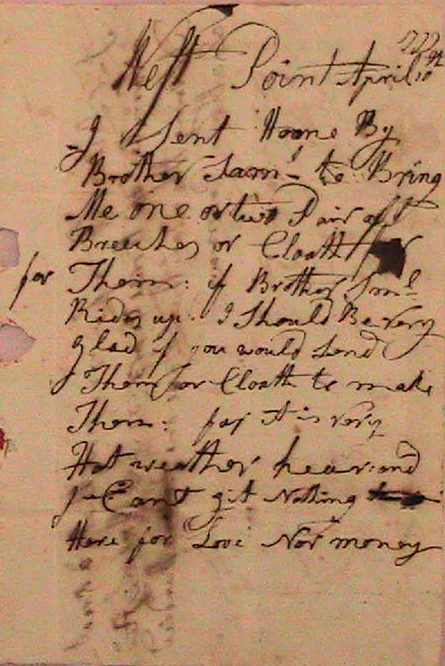 West Point April 10th 1777
I Sent Home By
Brother Saml to Bring
Me one or two Pair of
Breeches or Cloath for
for Them: if Brother Sml
Rides up. I Should Be very
glad if you would Send
Them or Cloath to make
Them: for it is very
Hot weather hear: and
I Cant git Nothing
Here for Love Nor money